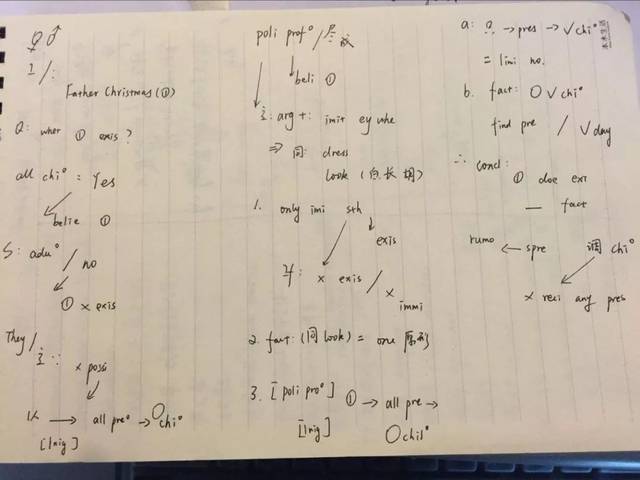 ♀♂
Father Christmas (①)
Q: wher ① exis?
all chi° = Yes
belie ①
S: adu° / no
① × exis
They /
× possi
1人 → all pre° → O chi°
[1nig]
poli prof° /
beli ①
arg+: imit ey whe
⇒ 同: dress
look (白长胡)
1. only imi sth
exis
× exis / × immi
2. fact: (同look) = one
3. [poli pro°] ① → all pre →
[1nig] O chil°
a: → pres → ✓chi°
= limi no.
b. fact: O ✓chi°
find pre / ✓ day
∴ concl:
① doe exi
— fact
rumo ← spre 调 chi°
× reci any pres